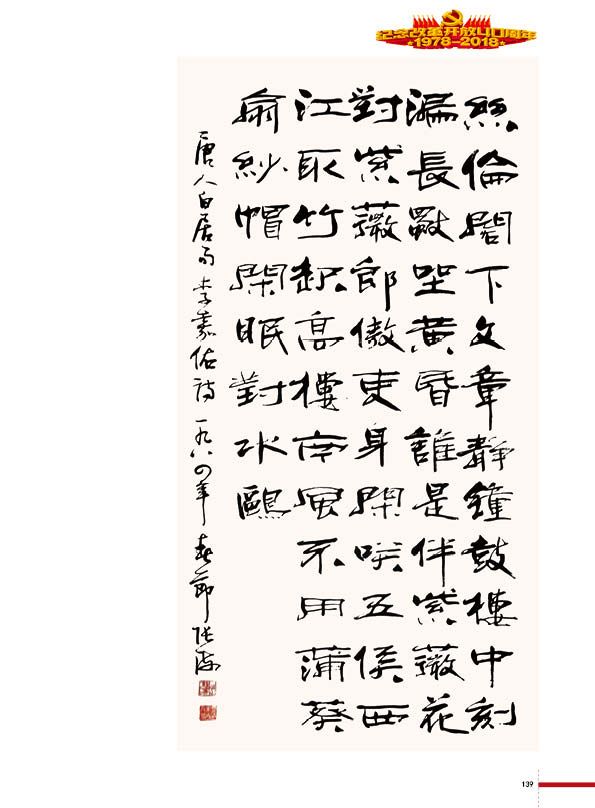 纪念改革开放40周年
1978-2018
絲倫閣下文章靜鐘鼓樓中刻
漏長獨坐黃昏誰是伴紫薇花
對紫薇郎傲吏身閑咲五侯西
江取竹起高樓南風不用蒲葵
扇紗帽閑眠對水鷗
唐人白居易李嘉佑詩一九八四年春節張海
139